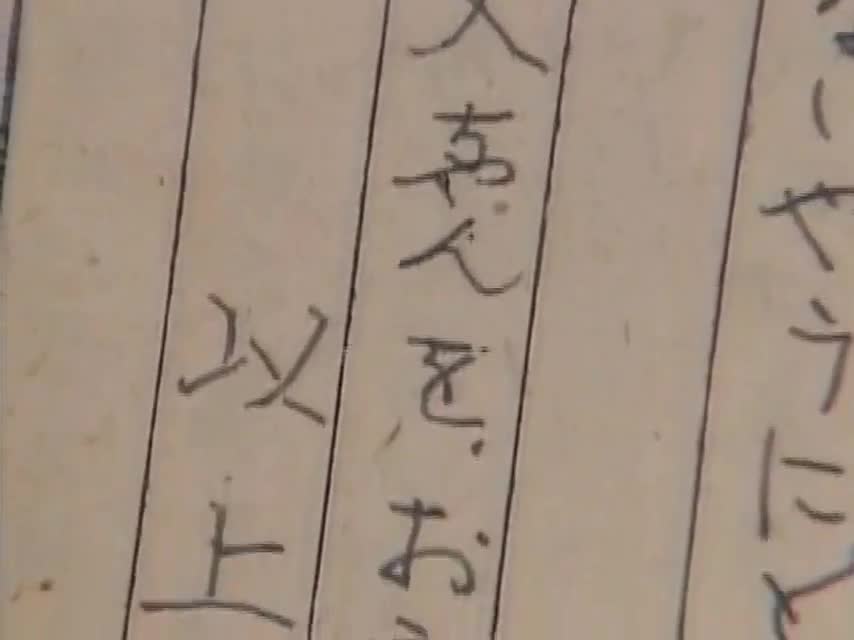 いやうに
父ちゃんをお
以上